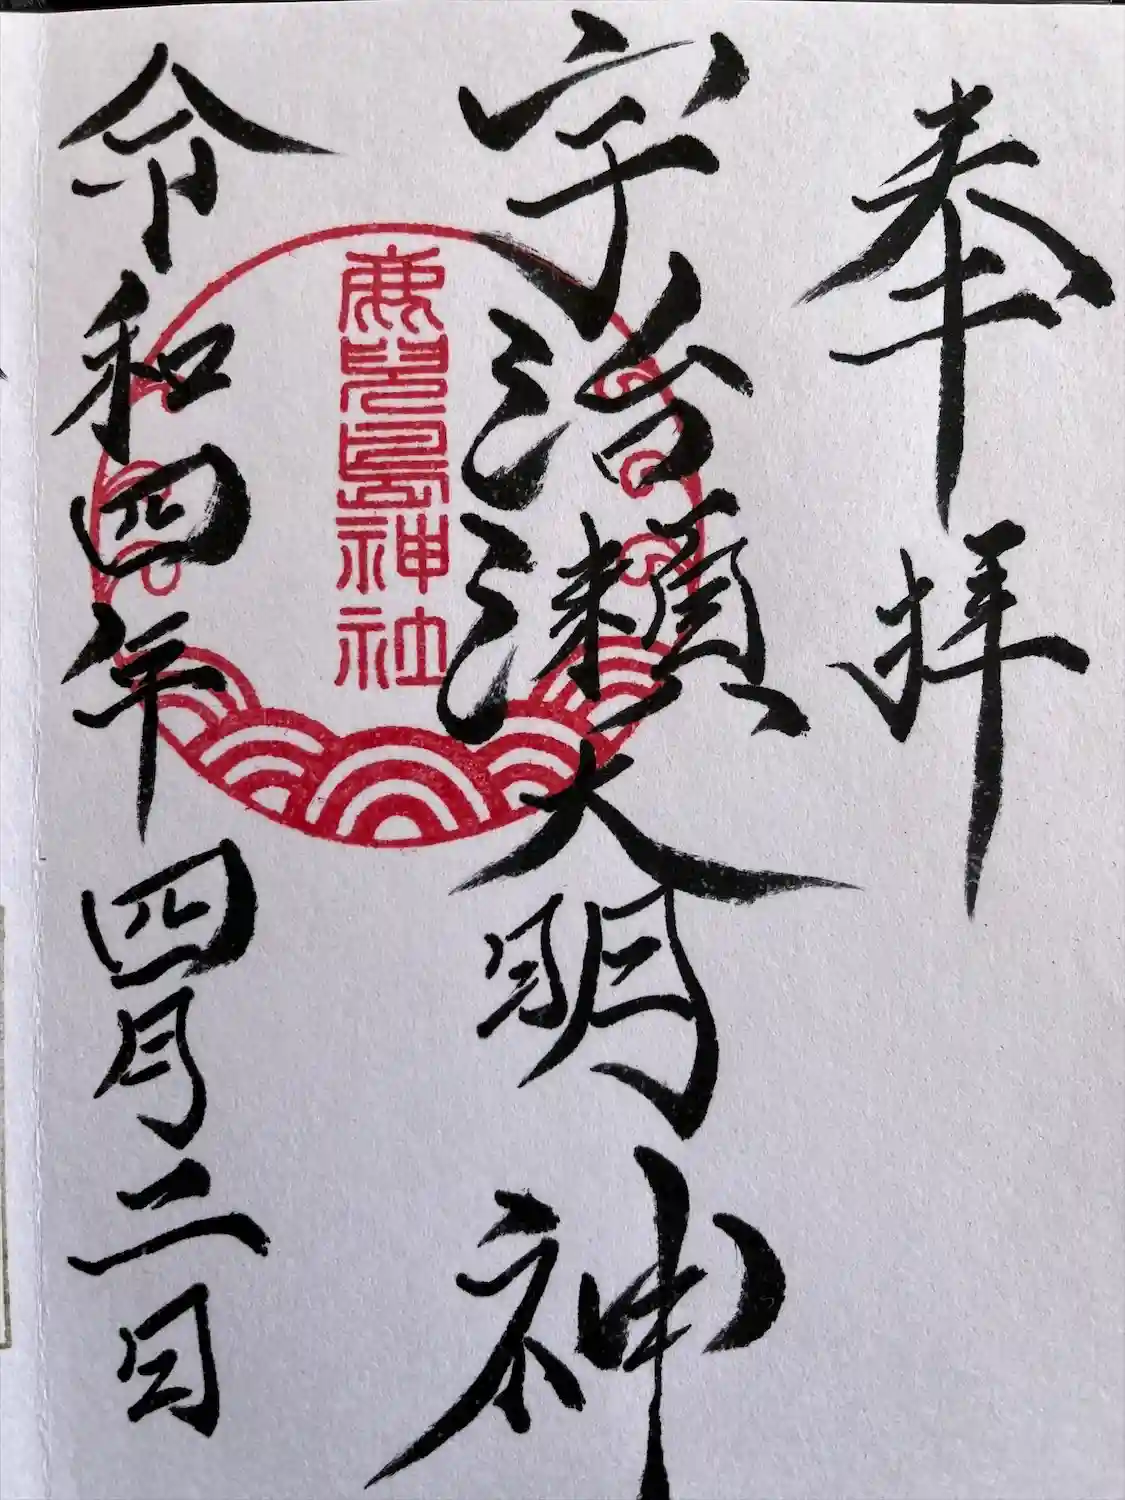 奉拝
宇治瀬大明神
鹿兒島神社
令和四年四月二日